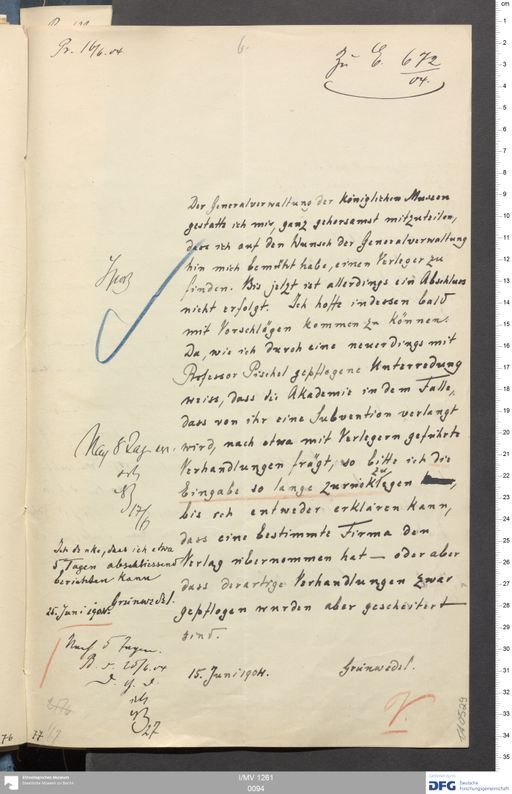 Pr. 16/6. 04
6.
Zu E. 672/04.
Der Generalverwaltung der Königlichen Museen
gestatte ich mir, ganz gehorsamst mitzuteilen,
dass ich auf den Wunsch der Generalverwaltung
hin mich bemüht habe, einen Verleger zu
finden. Bis jetzt ist allerdings ein Abschluss
nicht erfolgt. Ich hoffe indessen bald
mit Vorschlägen kommen zu können.
Da, wie ich durch eine neuerdings mit
Professor Pischel gepflogene Unterredung
weiss, dass die Akademie in dem Falle,
dass von ihr eine Subvention verlangt
wird, nach etwa mit Verlegern geführte
Verhandlungen frägt, so bitte ich die
Eingabe so lange zurückzulegen,
bis ich entweder erklären kann,
dass eine bestimmte Firma den
Verlag übernommen hat — oder aber
dass derartige Verhandlungen zwar
gepflogen wurden aber gescheitert
sind.
15. Juni 1904. Grünwedel.
Nach 8 Tagen
17/6
Ich denke, dass ich etwa
5 Tagen abschliessend
berichten kann
25. Juni 1904. Grünwedel.
Nach 5 Tagen.
B. v. 25/6. 04
27
V.
76
77
I/MV 1261
0094
Ethnologisches Museum
Staatliche Museen zu Berlin
DFG Deutsche
Forschungsgemeinschaft
cm
01
02
03
04
05
06
07
08
09
10
11
12
13
14
15
16
17
18
19
20
21
22
23
24
25
26
27
28
29
30
31
32
33
34
35